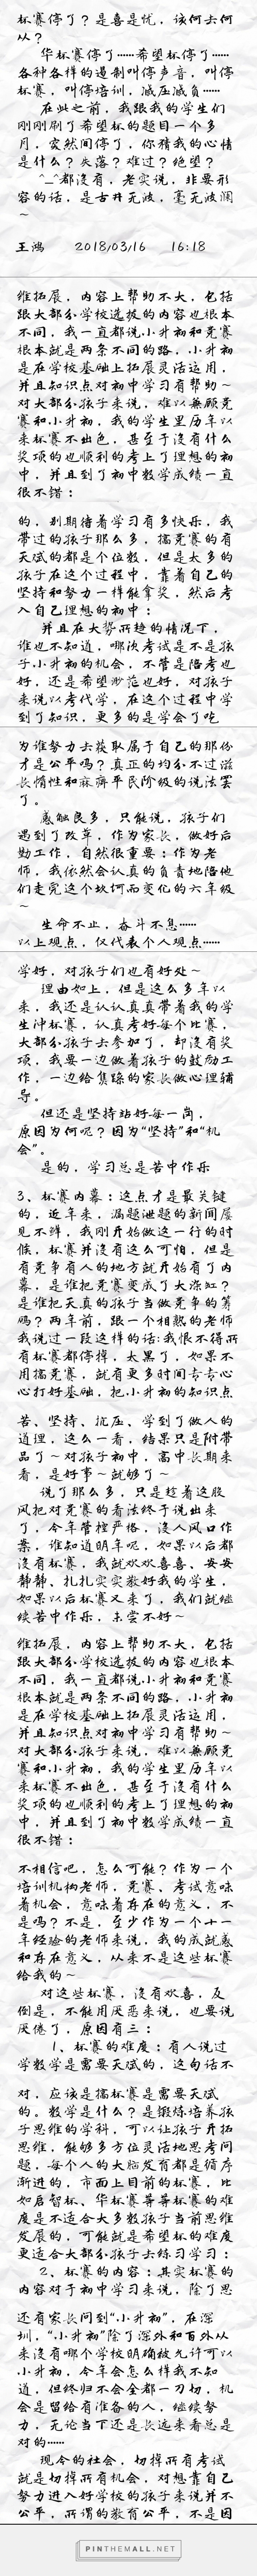 杯赛停了？是喜是忧，该何去何
从？
华杯赛停了……希望杯停了……
各种各样的遏制叫停声音，叫停
杯赛，叫停培训，减压减负……
在此之前，我跟我的学生们
刚刚刷了希望杯的题目一个多
月，突然间停了，你猜我的心情
是什么？失落？难过？绝望？
^_^都没有，老实说，非要形
容的话，是古井无波，毫无波澜
~
王鸿 2018/03/16 16:18
维拓展，内容上帮助不大，包括
跟大部分学校选拔的内容也根本
不同，我一直都说小升初和竞赛
根本就是两条不同的路，小升初
是在学校基础上拓展灵活运用，
并且知识点对初中学习有帮助~
对大部分孩子来说，难以兼顾竞
赛和小升初，我的学生里历年以
来杯赛不出色，甚至于没有什么
奖项的也顺利的考上了理想的初
中，并且到了初中数学成绩一直
很不错；
的，别期待着学习有多快乐，我
带过的孩子那么多，搞竞赛的有
天赋的都是个位数，但是太多的
孩子在这个过程中，靠着自己的
坚持和努力一样能拿奖，然后考
入自己理想的初中；
并且在大势所趋的情况下，
谁也不知道，哪次考试是不是孩
子小升初的机会，不管是陪考也
好，还是希望渺茫也好，对孩子
来说以考代学，在这个过程中学
到了知识，更多的是学会了吃
为谁努力去获取属于自己的那份
才是公平吗？真正的均分不过滋
长惰性和麻痹平民阶级的说法罢
了。
感触良多，只能说，孩子们
遇到了改革，作为家长，做好后
勤工作，自然很重要；作为老
师，我依然会认真的负责地陪他
们走完这个坎坷而变化的六年级
~
生命不止，奋斗不息……
以上观点，仅代表个人观点……
学好，对孩子们也有好处~
理由如上，但是这么多年以
来，我还是认认真真带着我的学
生冲杯赛，认真考好每个比赛，
大部分孩子去参加了，却没有奖
项，我要一边做着孩子的鼓励工
作，一边给焦躁的家长做心理辅
导。
但还是坚持站好每一岗，
原因为何呢？因为“坚持”和“机
会”。
是的，学习总是苦中作乐
3、杯赛内幕：这点才是最关键
的，近年来，漏题泄题的新闻屡
见不鲜，我刚开始做这一行的时
候，杯赛并没有这么可怕，但是
有竞争有人的地方就开始有了内
幕，是谁把竞赛变成了大染缸？
是谁把天真的孩子当做竞争的筹
码？两年前，跟一个相熟的老师
我说过一段这样的话：我恨不得所
有杯赛都停掉，太黑了，如果不
用搞竞赛，就有更多时间专专心
心打好基础，把小升初的知识点
苦、坚持、抗压、学到了做人的
道理，这么一看，结果只是附带
品了~对孩子初中，高中长期来
看，是好事~就够了~
说了那么多，只是趁着这股
风把对竞赛的看法终于说出来
了，今年管控严格，没人风口作
案，谁知道明年呢，如果以后都
没有杯赛，我就欢欢喜喜、安安
静静、扎扎实实教好我的学生，
如果以后杯赛又来了，我们就继
续苦中作乐，未尝不好~
维拓展，内容上帮助不大，包括
跟大部分学校选拔的内容也根本
不同，我一直都说小升初和竞赛
根本就是两条不同的路，小升初
是在学校基础上拓展灵活运用，
并且知识点对初中学习有帮助~
对大部分孩子来说，难以兼顾竞
赛和小升初，我的学生里历年以
来杯赛不出色，甚至于没有什么
奖项的也顺利的考上了理想的初
中，并且到了初中数学成绩一直
很不错；
不相信吧，怎么可能？作为一个
培训机构老师，竞赛、考试意味
着机会，意味着存在的意义，不
是吗？不是，至少作为一个十一
年经验的老师来说，我的成就感
和存在意义，从来不是这些杯赛
给我的~
对这些杯赛，没有欢喜，反
倒是，不能用厌恶来说，也要说
厌倦了，原因有三：
1、杯赛的难度：有人说过
学数学是需要天赋的，这句话不
对，应该是搞杯赛是需要天赋
的。数学是什么？是锻炼培养孩
子思维的学科，可以让孩子开拓
思维，能够多方位灵活地思考问
题，每个人的大脑发育都是循序
渐进的，市面上目前的杯赛，比
如启智杯、华杯赛等等杯赛的难
度是不适合大多数孩子当前思维
发展的，可能就是希望杯的难度
更适合大部分孩子去练习学习；
2、杯赛的内容：其实杯赛的
内容对于初中学习来说，除了思
还有家长问到“小升初”，在深
圳，“小升初”除了深外和百外从
来没有哪个学校明确被允许可以
小升初，今年会怎么样我不知
道，但终归不会全都一刀切，机
会是留给有准备的人，继续努
力，无论当下还是长远来看总是
对的……
现今的社会，切掉所有考试
就是切掉所有机会，对想靠自己
努力进入好学校的孩子来说并不
公平，所谓的教育公平，不是因
PINTHEMALL.NET